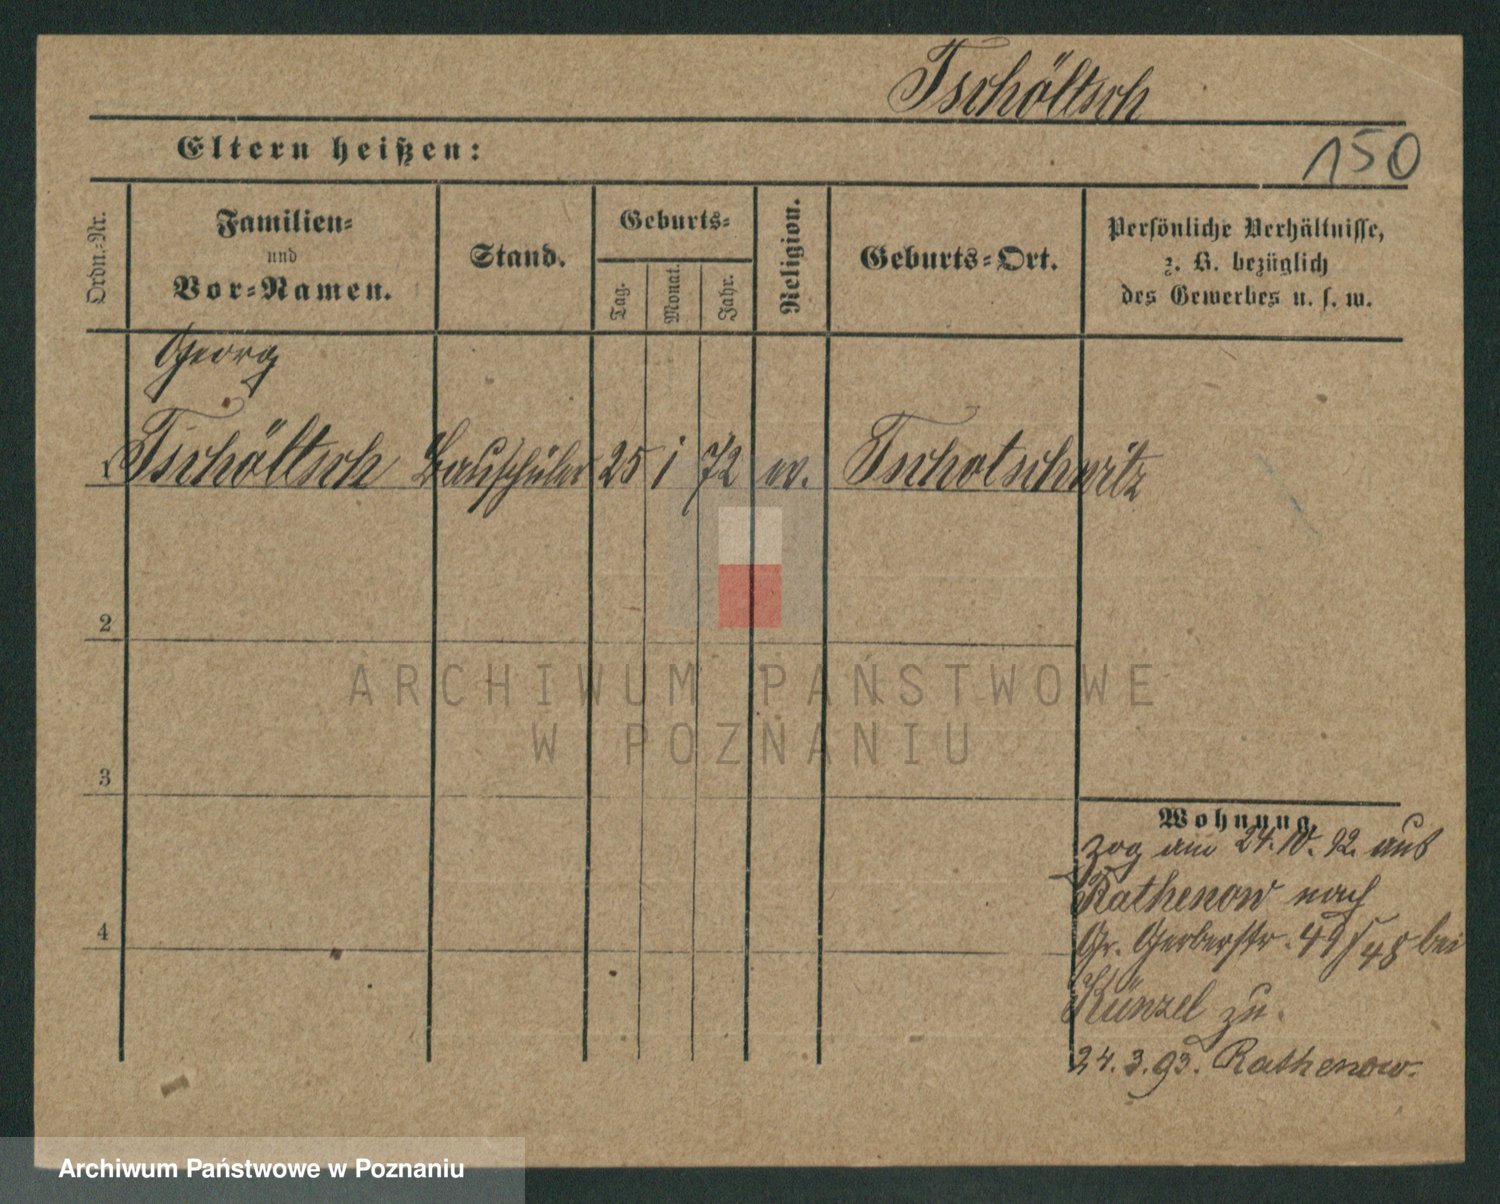 Tschöltsch
Eltern heißen:
150
Ordn.-Nr.
Familien-
und
Vor-Namen.
Stand.
Geburts-
Tag.
Monat.
Jahr.
Religion.
Geburts-Ort.
Persönliche Verhältnisse,
z. B. bezüglich
des Gewerbes u. s. w.
Georg
1 Tschöltsch Bauschüler 25 1 72 ev. Tschotschwitz
2
3
4
Wohnung.
zog am 24.10.92. aus
Rathenow nach
Gr. Gerberstr. 47/48 bei
Künzel zu.
24.3.93. Rathenow.
ARCHIWUM PAŃSTWOWE
W POZNANIU
Archiwum Państwowe w Poznaniu